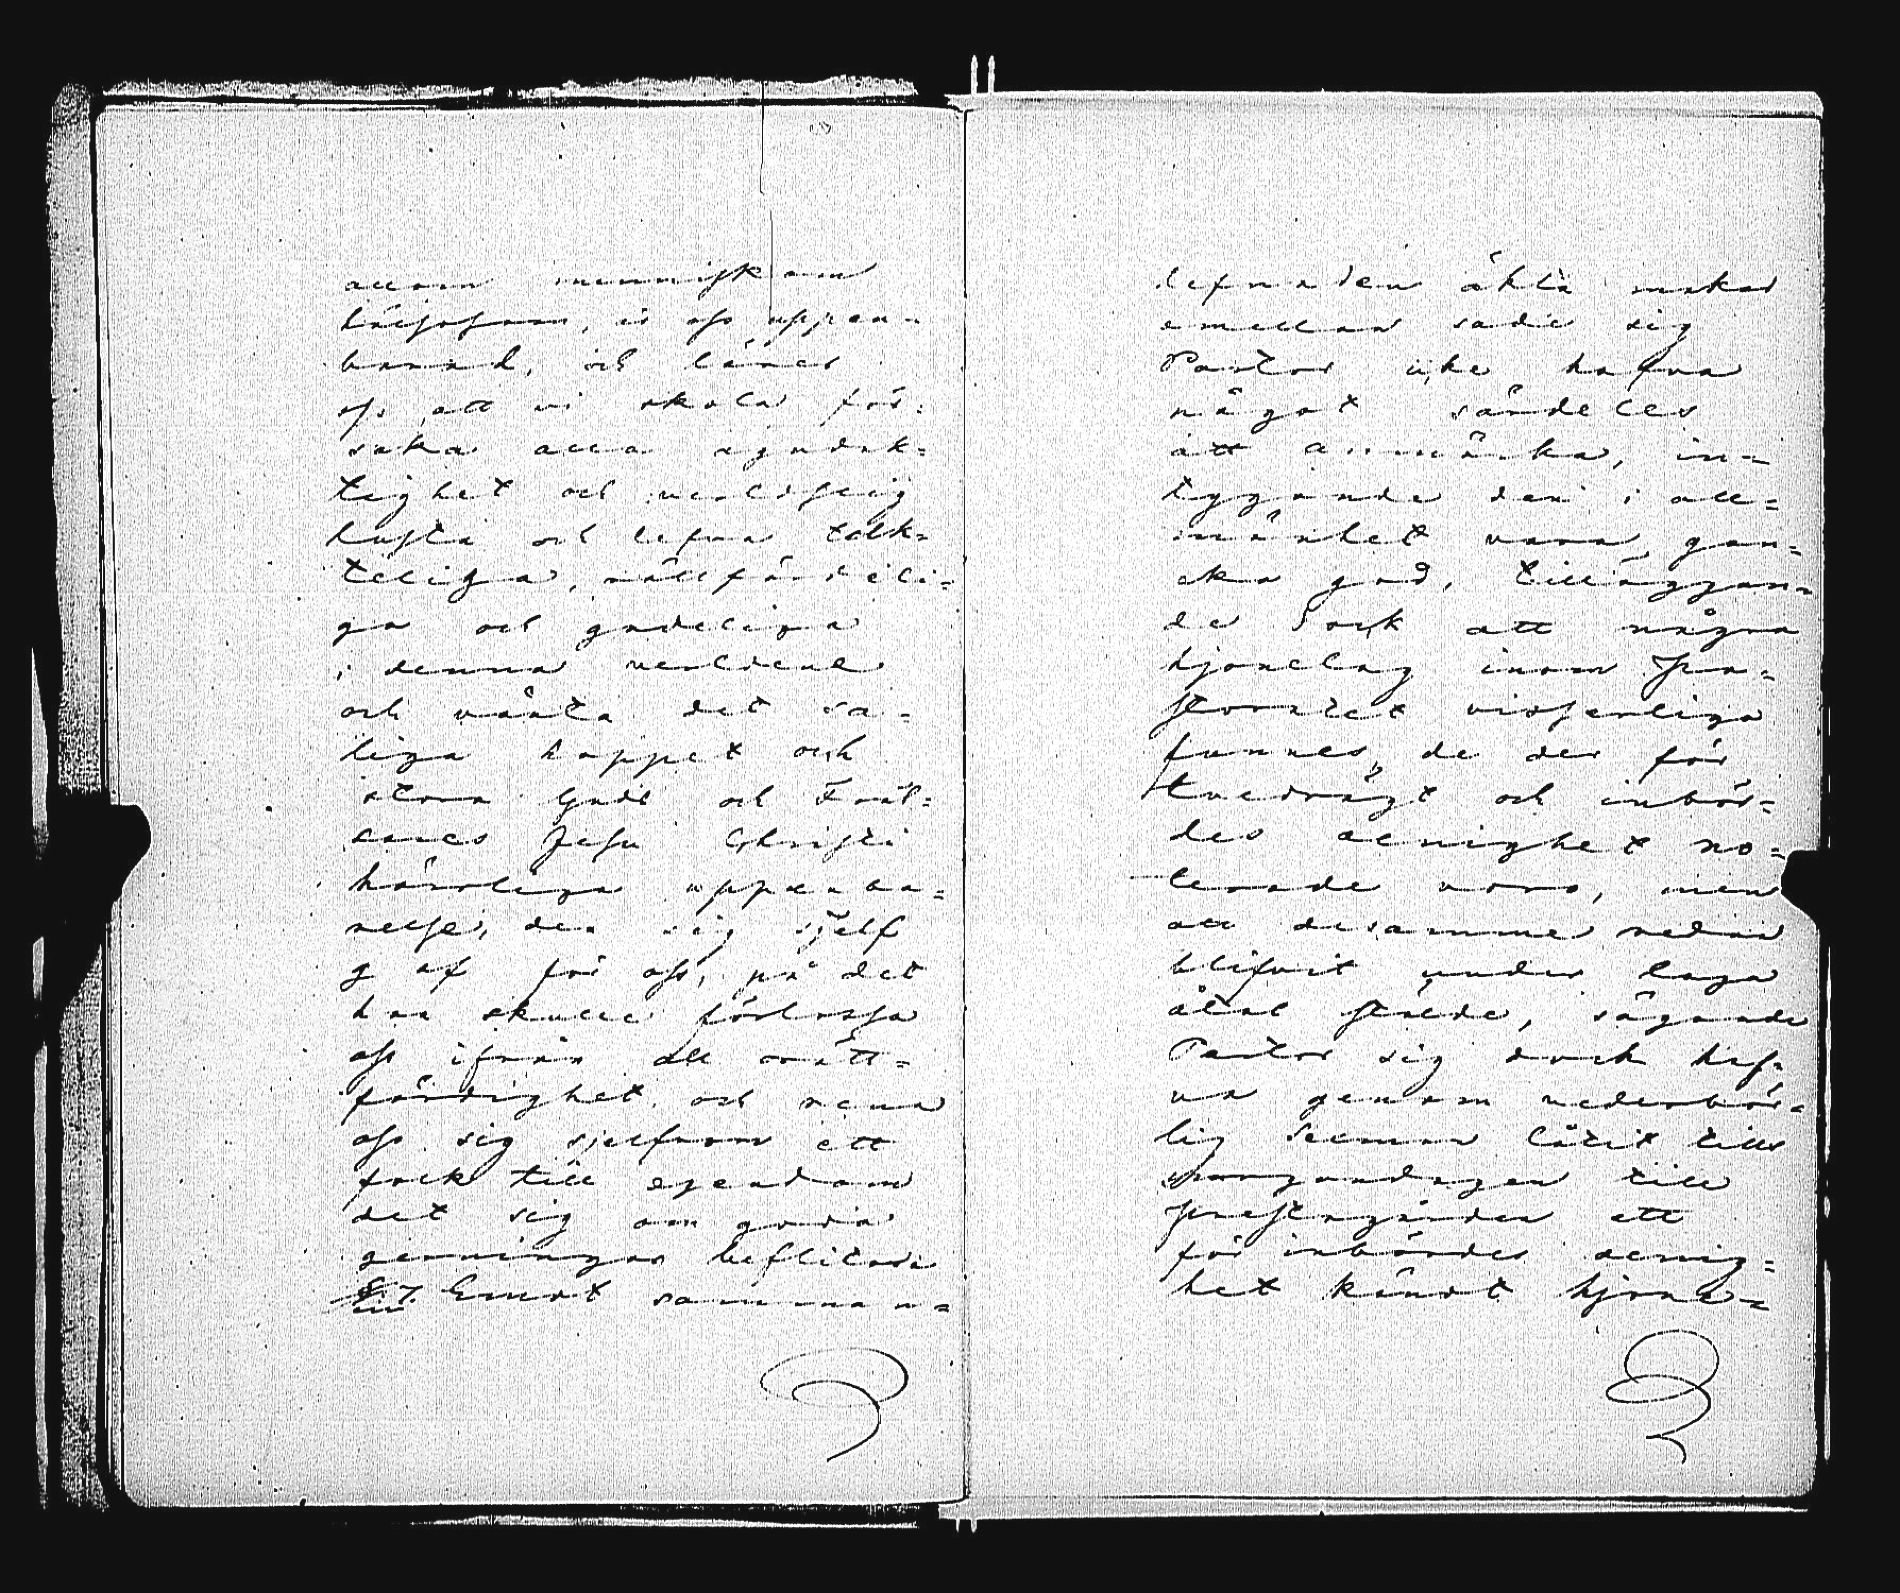 allom menniskiom
hälsosam, är oss uppen-
barad, och lärer
oss att vi skola för:
saka alla ogudak=
tighet och verldslig
lusta och lefva tack=
teliga, rättfärdeli=
ga och gudeliga
i denna verldene
och vänta det sa-
liga hoppet och
stora Guds och Fräl=
sares Jesu Christi
härliga uppenba=
relse, den sig sjelf
gaf för oss, på det
han skulle förlossa
oss ifrån all orätt=
färdighet, och rena
oss sig sjelfvom ett
folk till egendom
det sig om goda
gerningar beflitar.
§. 7. Emot samman=
lefnaden äkta makar
emellan sade sig
Pastor icke hafva
något särdeles
att anmärka, in=
tygande den i all=
mänhet vara gan=
ska god, tilläggan=
de dock att några
hjonelag inom Pa=
storatet visserligen
funnes, de der för
tvedrägt och inbör=
des oenighet no=
terade voro, men
att desamme redan
blifvit under laga
åtal stälde, sägande
Pastor sig dock haf=
va genom vederbör=
lig Säcman låtit till
morgondagen till
prestgården ett
för inbördes oenig=
het kändt hjone=